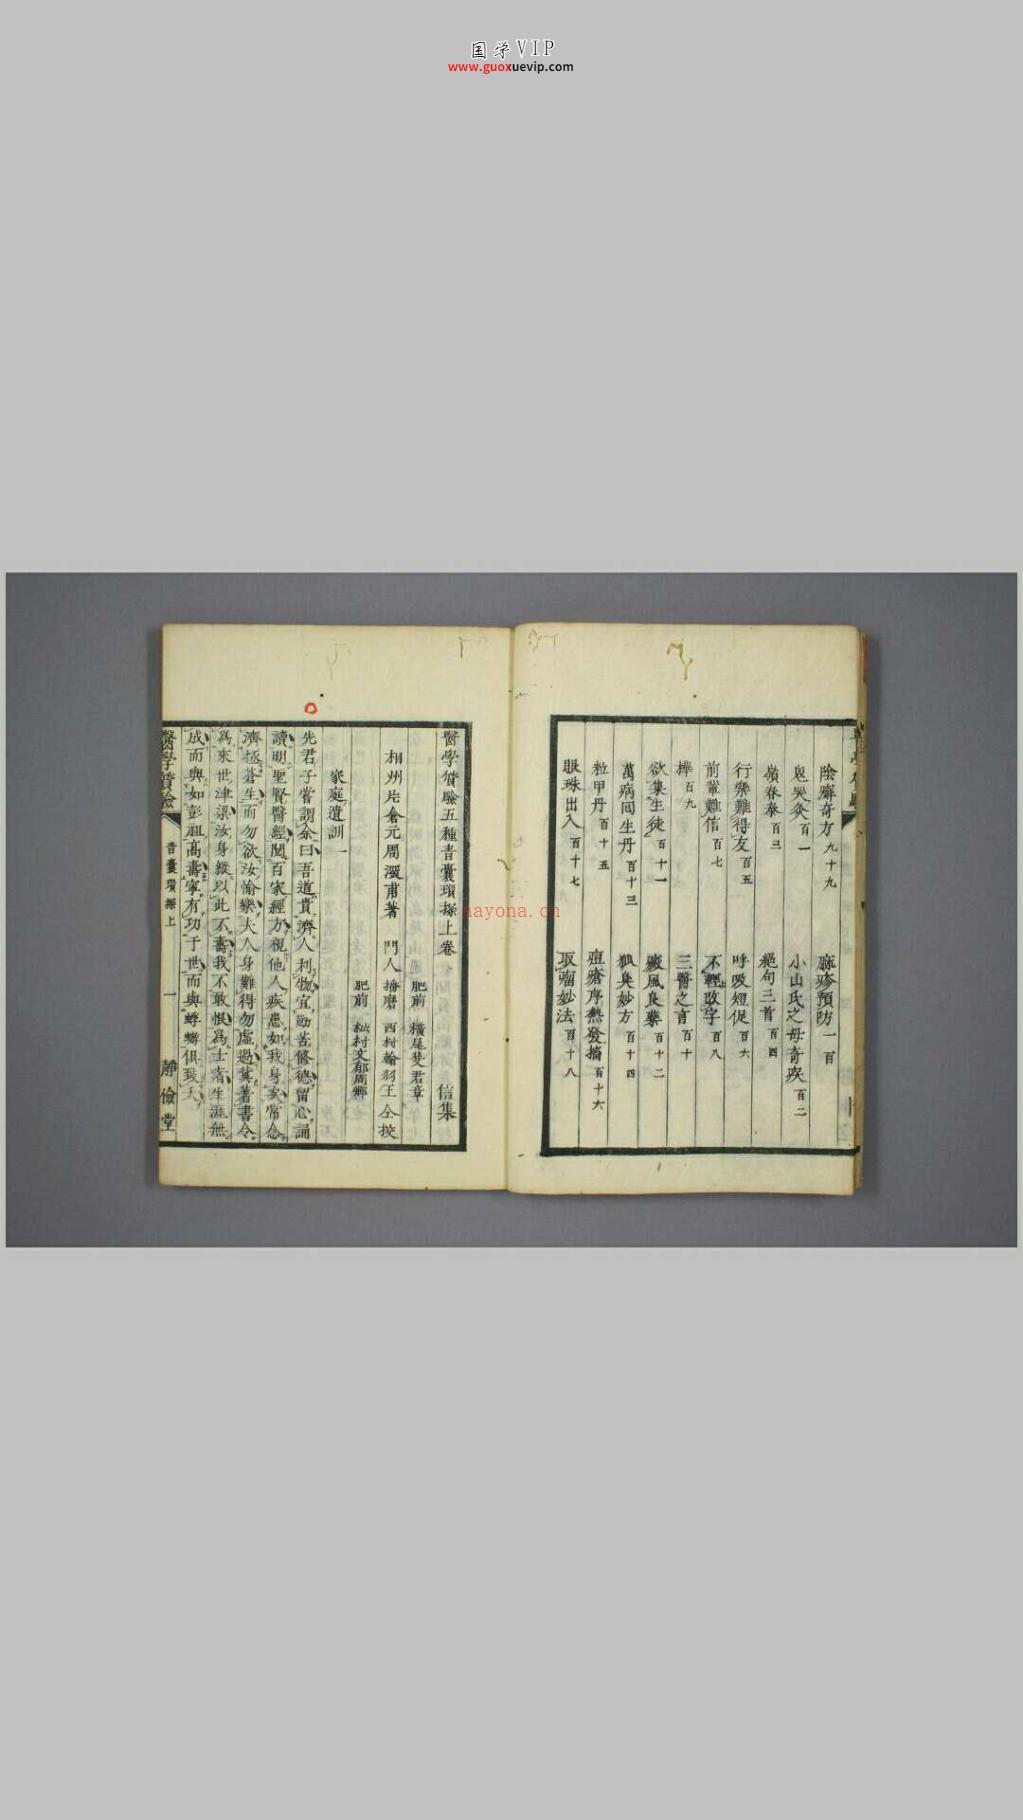 国学VIP
www.guoxuevip.com
陰癬奇方九十九
麻疹預防一百
鬼哭灸百一
小山氏之母奇疾百二
嶺春泰百三
絕句三首百四
行樂難得友百五
呼吸短促百六
前輩難信百七
不輕改字百八
樺百九
三醫之言百十
欲集生徒百十一
癜風良藥百十二
萬病回生丹百十三
狐臭妙方百十四
粒甲丹百十五
痘瘡序熱發搐百十六
眼珠出入百十七
取瘤妙法百十八
醫學質驗五種青囊瑣探上卷 信集
肥前 橫尾斐君章
相州片倉元周深甫著 門人播磨 西村翰羽王仝挍
肥前 松村文郁周鄉
家庭遺訓一
先君子嘗謂余曰吾道貴濟人利物宜勤苦修德留心誦
讀明聖賢醫經閱百家經方視他人疾患如我身亥常念
濟拯蒼生而勿欲汝愉樂大人身難得勿虛過冀著書令
爲來世津梁汝身縱以此不壽我不敢恨爲士者生涯無
成而與如彭祖高壽寧有功于世而與蜉蝣俱致夭
醫學質驗 青囊瑣探上 一 靜儉堂
nayona.cn